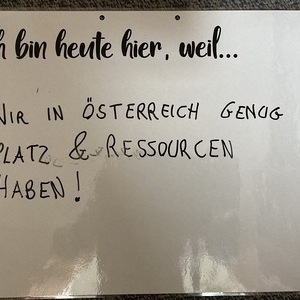 h bin heute hier, weil...
WIR IN ÖSTERREICH GENUG
PLATZ & RESSOURCEN
HABEN!